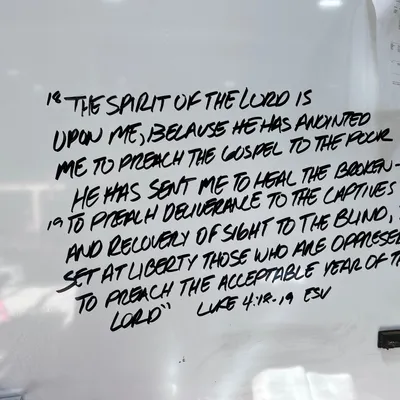 18 "THE SPIRIT OF THE LORD IS
UPON ME, BECAUSE HE HAS ANOINTED
ME TO PREACH THE GOSPEL TO THE POOR
HE HAS SENT ME TO HEAL THE BROKEN-
19 TO PREACH DELIVERANCE TO THE CAPTIVES
AND RECOVERY OF SIGHT TO THE BLIND,
SET AT LIBERTY THOSE WHO ARE OPPRESSE
TO PREACH THE ACCEPTABLE YEAR OF T
LORD" LUKE 4:18-19 ESV